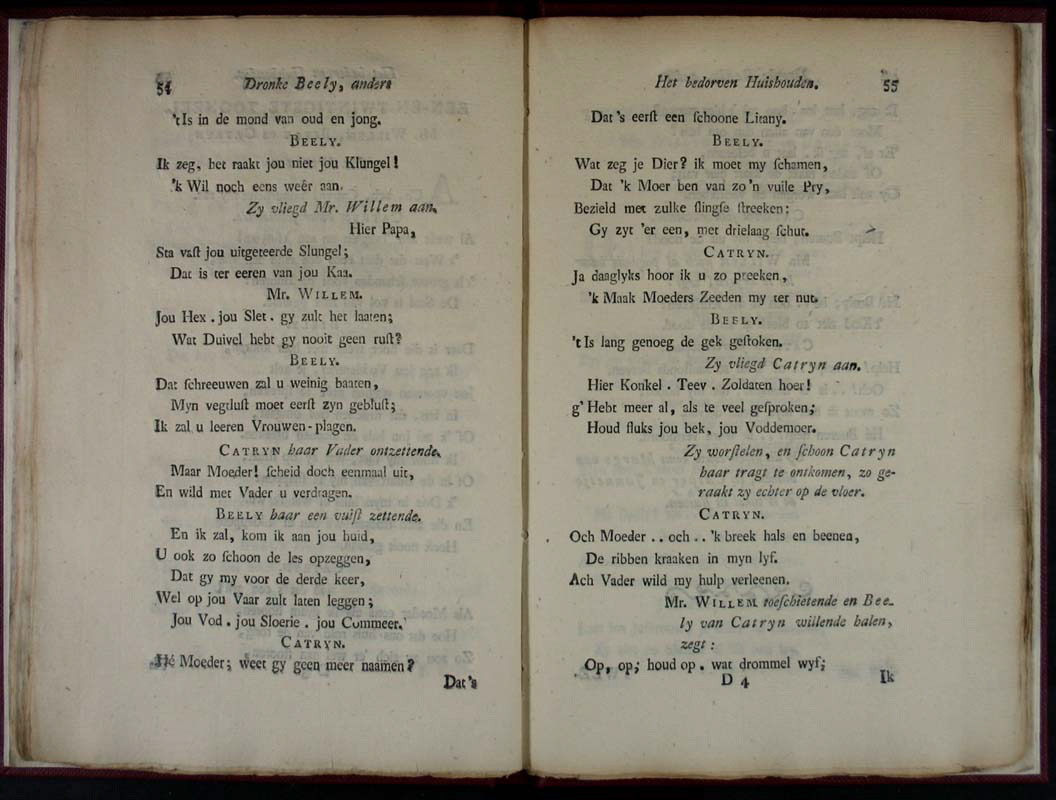 54 Dronke Beely, anders
'tIs in de mond van oud en jong.
BEELY.
Ik zeg, het raakt jou niet jou Klungel!
'k Wil noch eens weêr aan.
Zy vliegd Mr. Willem aan.
Hier Papa,
Sta vaſt jou uitgeteerde Slungel;
Dat is ter eeren van jou Kaa.
Mr. WILLEM.
Jou Hex . jou Slet . gy zult het laaten;
Wat Duivel hebt gy nooit geen ruſt?
BEELY.
Dat ſchreeuwen zal u weinig baaten,
Myn vegtluſt moet eerſt zyn gebluſt;
Ik zal u leeren Vrouwen-plagen.
CATRYN haar Vader ontzettende.
Maar Moeder! ſcheid doch eenmaal uit,
En wild met Vader u verdragen.
BEELY haar een vuiſt zettende.
En ik zal, kom ik aan jou huid,
U ook zo ſchoon de les opzeggen,
Dat gy my voor de derde keer,
Wel op jou Vaar zult laten leggen;
Jou Vod . jou Sloerie . jou Commeer.
CATRYN.
Hé Moeder; weet gy geen meer naamen?
Dat's
Het bedorven Huishouden. 55
Dat's eerſt een ſchoone Litany.
BEELY.
Wat zeg je Dier? ik moet my ſchamen,
Dat 'k Moer ben van zo'n vuile Pry,
Bezield met zulke ſlingſe ſtreeken:
Gy zyt 'er een, met drielaag ſchut.
CATRYN.
Ja daaglyks hoor ik u zo preeken,
'k Maak Moeders Zeeden my ter nut.
BEELY.
'tIs lang genoeg de gek geſtoken.
Zy vliegd Catryn aan.
Hier Konkel . Teev . Zoldaten hoer!
g'Hebt meer al, als te veel geſproken;
Houd fluks jou bek, jou Voddemoer.
Zy worſtelen, en ſchoon Catryn
haar tragt te ontkomen, zo ge-
raakt zy echter op de vloer.
CATRYN.
Och Moeder .. och .. 'k breek hals en beenen,
De ribben kraaken in myn lyf.
Ach Vader wild my hulp verleenen.
Mr. WILLEM toeſchietende en Bee-
ly van Catryn willende halen,
zegt:
Op, op; houd op . wat drommel wyf;
D 4 Ik